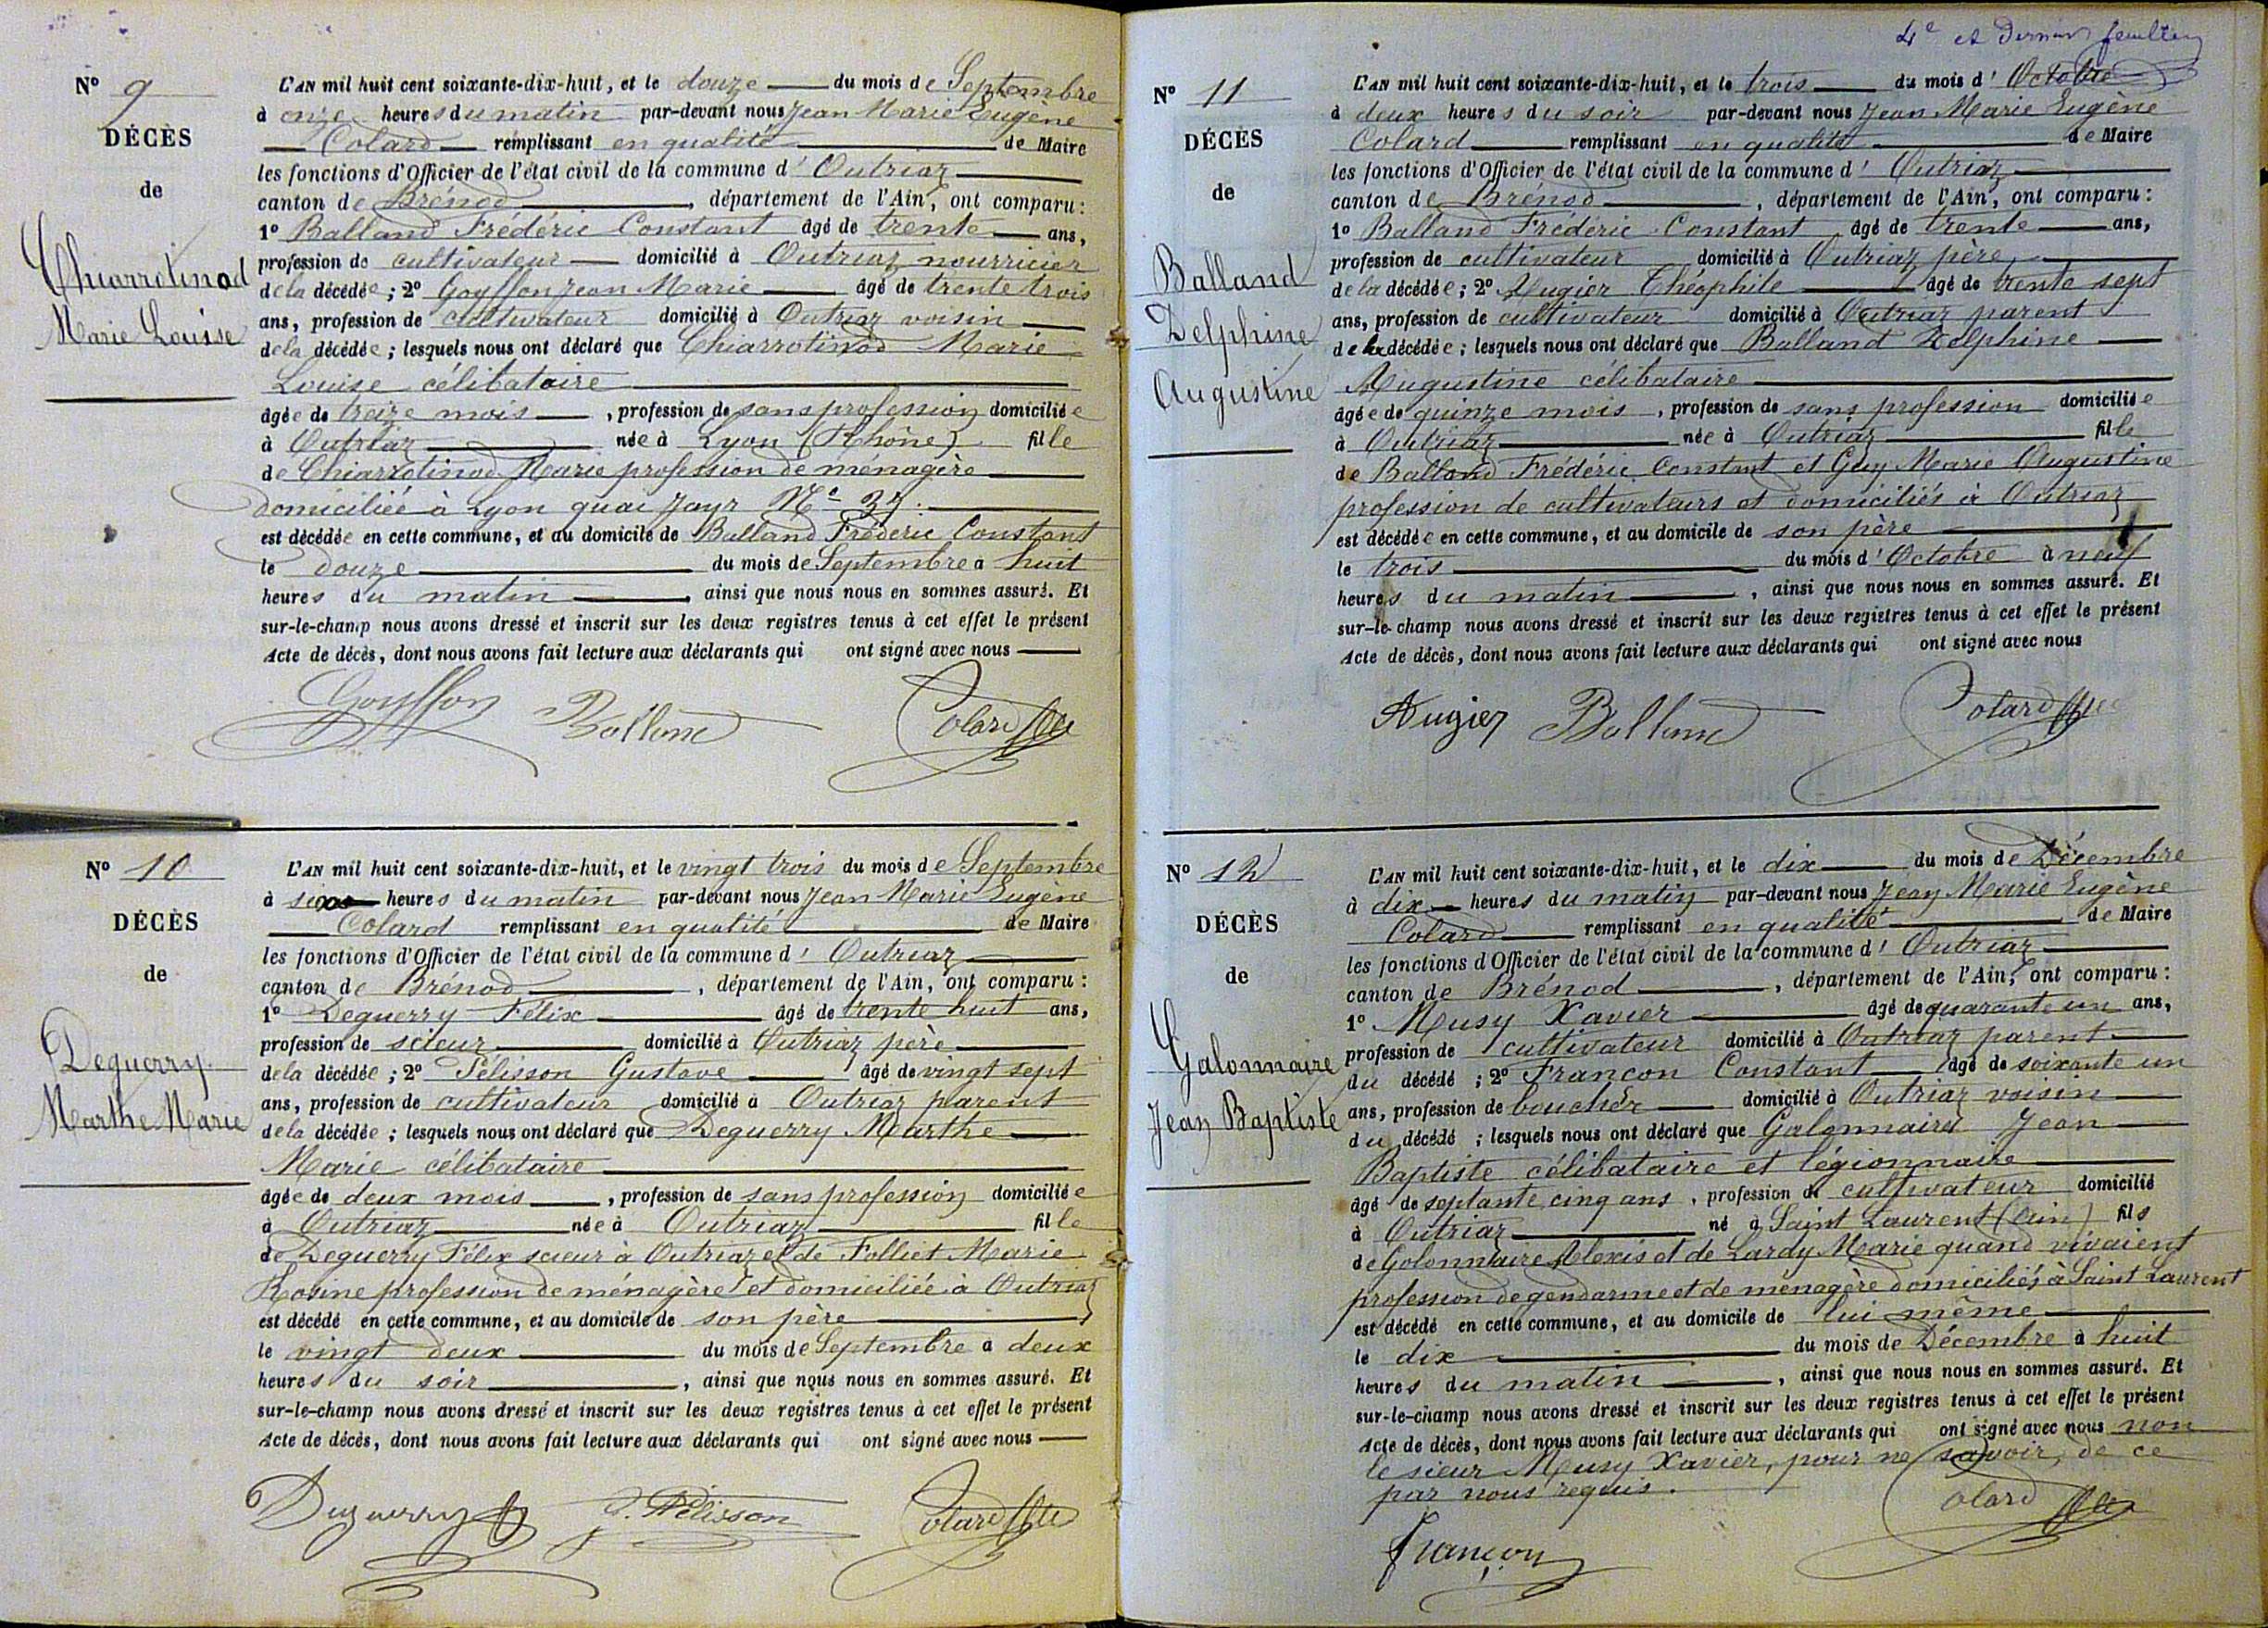 Nº 9
DÉCÈS
de
Chiarrotinod
Marie Louise
L'AN mil huit cent soixante-dix-huit, et le douze du mois de Septembre
à onze heures du matin par-devant nous Jean Marie Eugène
Colard remplissant en qualité de Maire
les fonctions d'Officier de l'état civil de la commune d' Outriaz
canton de Brénod, département de l'Ain, ont comparu :
1º Balland Frédéric Constant âgé de trente ans,
profession de cultivateur domicilié à Outriaz nourricier
de la décédée ; 2º Goyffon Jean Marie âgé de trente trois
ans, profession de cultivateur domicilié à Outriaz voisin
de la décédée ; lesquels nous ont déclaré que Chiarrotinod Marie
Louise célibataire
âgée de treize mois, profession de sans profession domiciliée
à Outriaz née à Lyon (Rhône) fille
de Chiarrotinod Marie profession de ménagère
domiciliée à Lyon quai Jayr Nº 37.
est décédée en cette commune, et au domicile de Balland Fréderic Constant
le douze du mois de Septembre à huit
heures du matin, ainsi que nous nous en sommes assuré. Et
sur-le-champ nous avons dressé et inscrit sur les deux registres tenus à cet effet le présent
Acte de décès, dont nous avons fait lecture aux déclarants qui ont signé avec nous
Goyffon Balland Colard
Nº 10
DÉCÈS
de
Deguerry
Marthe Marie
L'AN mil huit cent soixante-dix-huit, et le vingt trois du mois de Septembre
à six heures du matin par-devant nous Jean Marie Eugène
Colard remplissant en qualité de Maire
les fonctions d'Officier de l'état civil de la commune d' Outriaz
canton de Brénod, département de l'Ain, ont comparu :
1º Deguerry Félix âgé de trente huit ans,
profession de scieur domicilié à Outriaz père
de la décédée ; 2º Pélisson Gustave âgé de vingt sept
ans, profession de cultivateur domicilié à Outriaz parent
de la décédée ; lesquels nous ont déclaré que Deguerry Marthe
Marie célibataire
âgée de deux mois, profession de sans profession domiciliée
à Outriaz née à Outriaz fille
de Deguerry Félix scieur à Outriaz et de Folliet Marie
Rosine profession de ménagère et domiciliée à Outriaz
est décédé en cette commune, et au domicile de son père
le vingt deux du mois de Septembre à deux
heures du soir, ainsi que nous nous en sommes assuré. Et
sur-le-champ nous avons dressé et inscrit sur les deux registres tenus à cet effet le présent
Acte de décès, dont nous avons fait lecture aux déclarants qui ont signé avec nous
Deguerry G. Pélisson Colard
4e et Dernier feuillet
Nº 11
DÉCÈS
de
Balland
Delphine
Augustine
L'AN mil huit cent soixante-dix-huit, et le trois du mois d' Octobre
à deux heures du soir par-devant nous Jean Marie Eugène
Colard remplissant en qualité de Maire
les fonctions d'Officier de l'état civil de la commune d' Outriaz
canton de Brénod, département de l'Ain, ont comparu :
1º Balland Frédéric Constant âgé de trente ans,
profession de cultivateur domicilié à Outriaz père
de la décédée ; 2º Augier Théophile âgé de trente sept
ans, profession de cultivateur domicilié à Outriaz parent
de la décédée ; lesquels nous ont déclaré que Balland Delphine
Augustine célibataire
âgée de quinze mois, profession de sans profession domiciliée
à Outriaz née à Outriaz fille
de Balland Frédéric Constant et Guy Marie Augustine
profession de cultivateurs et domiciliés à Outriaz
est décédée en cette commune, et au domicile de son père
le trois du mois d' Octobre à neuf
heures du matin, ainsi que nous nous en sommes assuré. Et
sur-le-champ nous avons dressé et inscrit sur les deux registres tenus à cet effet le présent
Acte de décès, dont nous avons fait lecture aux déclarants qui ont signé avec nous
Augier Balland Colard
Nº 12
DÉCÈS
de
Galonnaire
Jean Baptiste
L'AN mil huit cent soixante-dix-huit, et le dix du mois de Décembre
à dix heures du matin par-devant nous Jean Marie Eugène
Colard remplissant en qualité de Maire
les fonctions d'Officier de l'état civil de la commune d' Outriaz
canton de Brénod, département de l'Ain, ont comparu :
1º Musy Xavier âgé de quarante un ans,
profession de cultivateur domicilié à Outriaz parent
du décédé ; 2º Francon Constant âgé de soixante un
ans, profession de boucher domicilié à Outriaz voisin
du décédé ; lesquels nous ont déclaré que Galonnaire Jean
Baptiste célibataire et légionnaire
âgé de septante cinq ans, profession de cultivateur domicilié
à Outriaz né à Saint Laurent (Ain) fils
de Golonnaire Alexis et de Lardy Marie quand vivaient
profession de gendarme et de ménagère domiciliés à Saint Laurent
est décédé en cette commune, et au domicile de lui même
le dix du mois de Décembre à huit
heures du matin, ainsi que nous nous en sommes assuré. Et
sur-le-champ nous avons dressé et inscrit sur les deux registres tenus à cet effet le présent
Acte de décès, dont nous avons fait lecture aux déclarants qui ont signé avec nous non
le sieur Musy Xavier, pour ne savoir, de ce
par nous requis.
Françon Colard